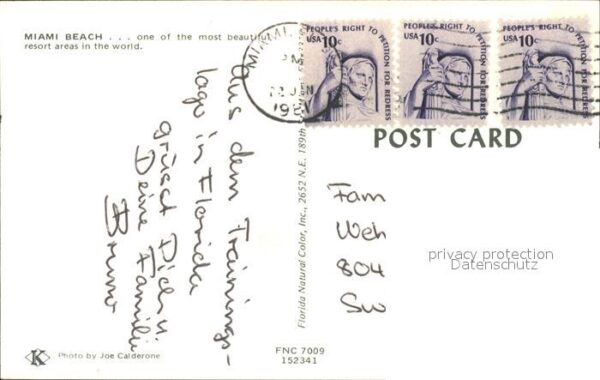 MIAMI BEACH . . . one of the most beautiful
resort areas in the world.
MIAMI,
PM
JUN
PEOPLE'S RIGHT TO PETITION FOR REDRESS
USA 10c
PEOPLE'S RIGHT TO PETITION FOR REDRESS
USA 10c
PEOPLE'S RIGHT TO PETITION FOR REDRESS
USA 10c
POST CARD
Aus dem Trainings-
lager in Florida
grüsst Dich u.
Deine Familie
Bruno
Florida Natural Color, Inc., 2652 N.E. 189th
Fam
Weh
804
Sw
privacy protection
Datenschutz
K
Photo by Joe Calderone
FNC 7009
152341